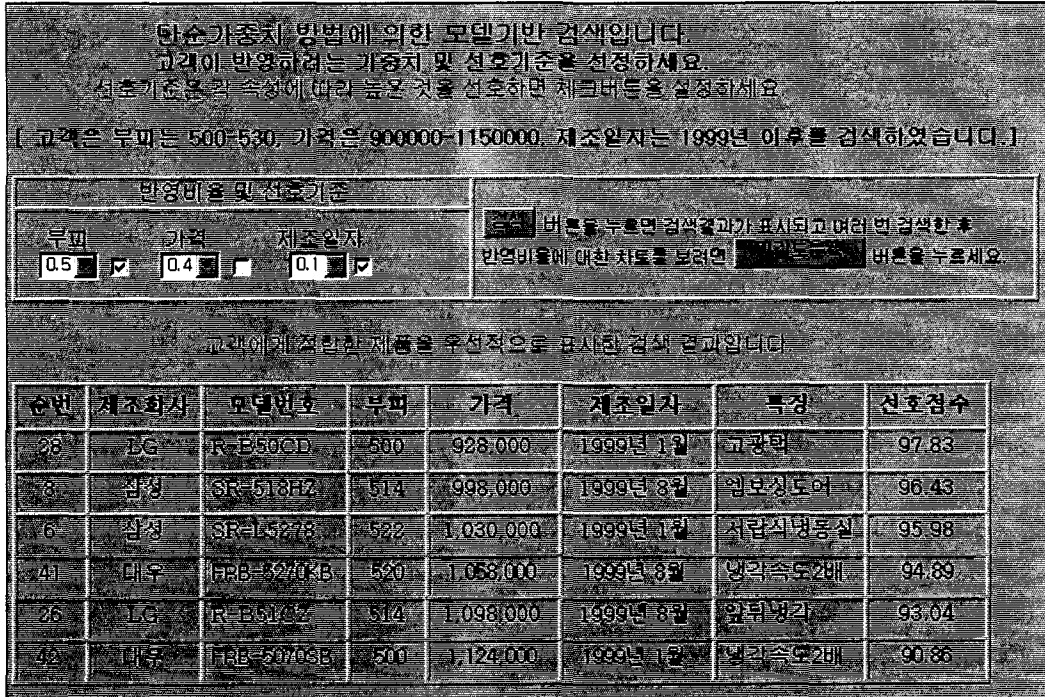 단순가중치 방법에 의한 모델기반 검색입니다.
고객이 반영하려는 가중치 및 선호기준을 선정하세요.
선호기준은 각 속성에 따라 높은 것을 선호하면 체크버튼을 설정하세요
[ 고객은 부피는 500-530, 가격은 900000-1150000, 제조일자는 1999년 이후를 검색하였습니다.]
반영비율 및 선호기준
부피 가격 제조일자
0.5 0.4 0.1
검색 버튼을 누르면 검색결과가 표시되고 여러 번 검색한 후
반영비율에 대한 차트를 보려면 버튼을 누르세요
고객에게 적합한 제품을 우선적으로 표시한 검색 결과입니다
순번 제조회사 모델번호 부피 가격 제조일자 특징 선호점수
28 LG R-B50CD 500 928,000 1999년 1월 고광택 97.83
8 삼성 SR-518HZ 514 998,000 1999년 8월 엠보싱도어 96.43
6 삼성 SR-L5278 522 1,030,000 1999년 1월 서랍식냉동실 95.98
41 대우 FRB-5270KB 520 1,058,000 1999년 8월 냉각속도2배 94.89
26 LG R-B51CZ 514 1,098,000 1999년 8월 앞뒤냉각 93.04
42 대우 FRB-5070SB 500 1,124,000 1999년 1월 냉각속도2배 90.86